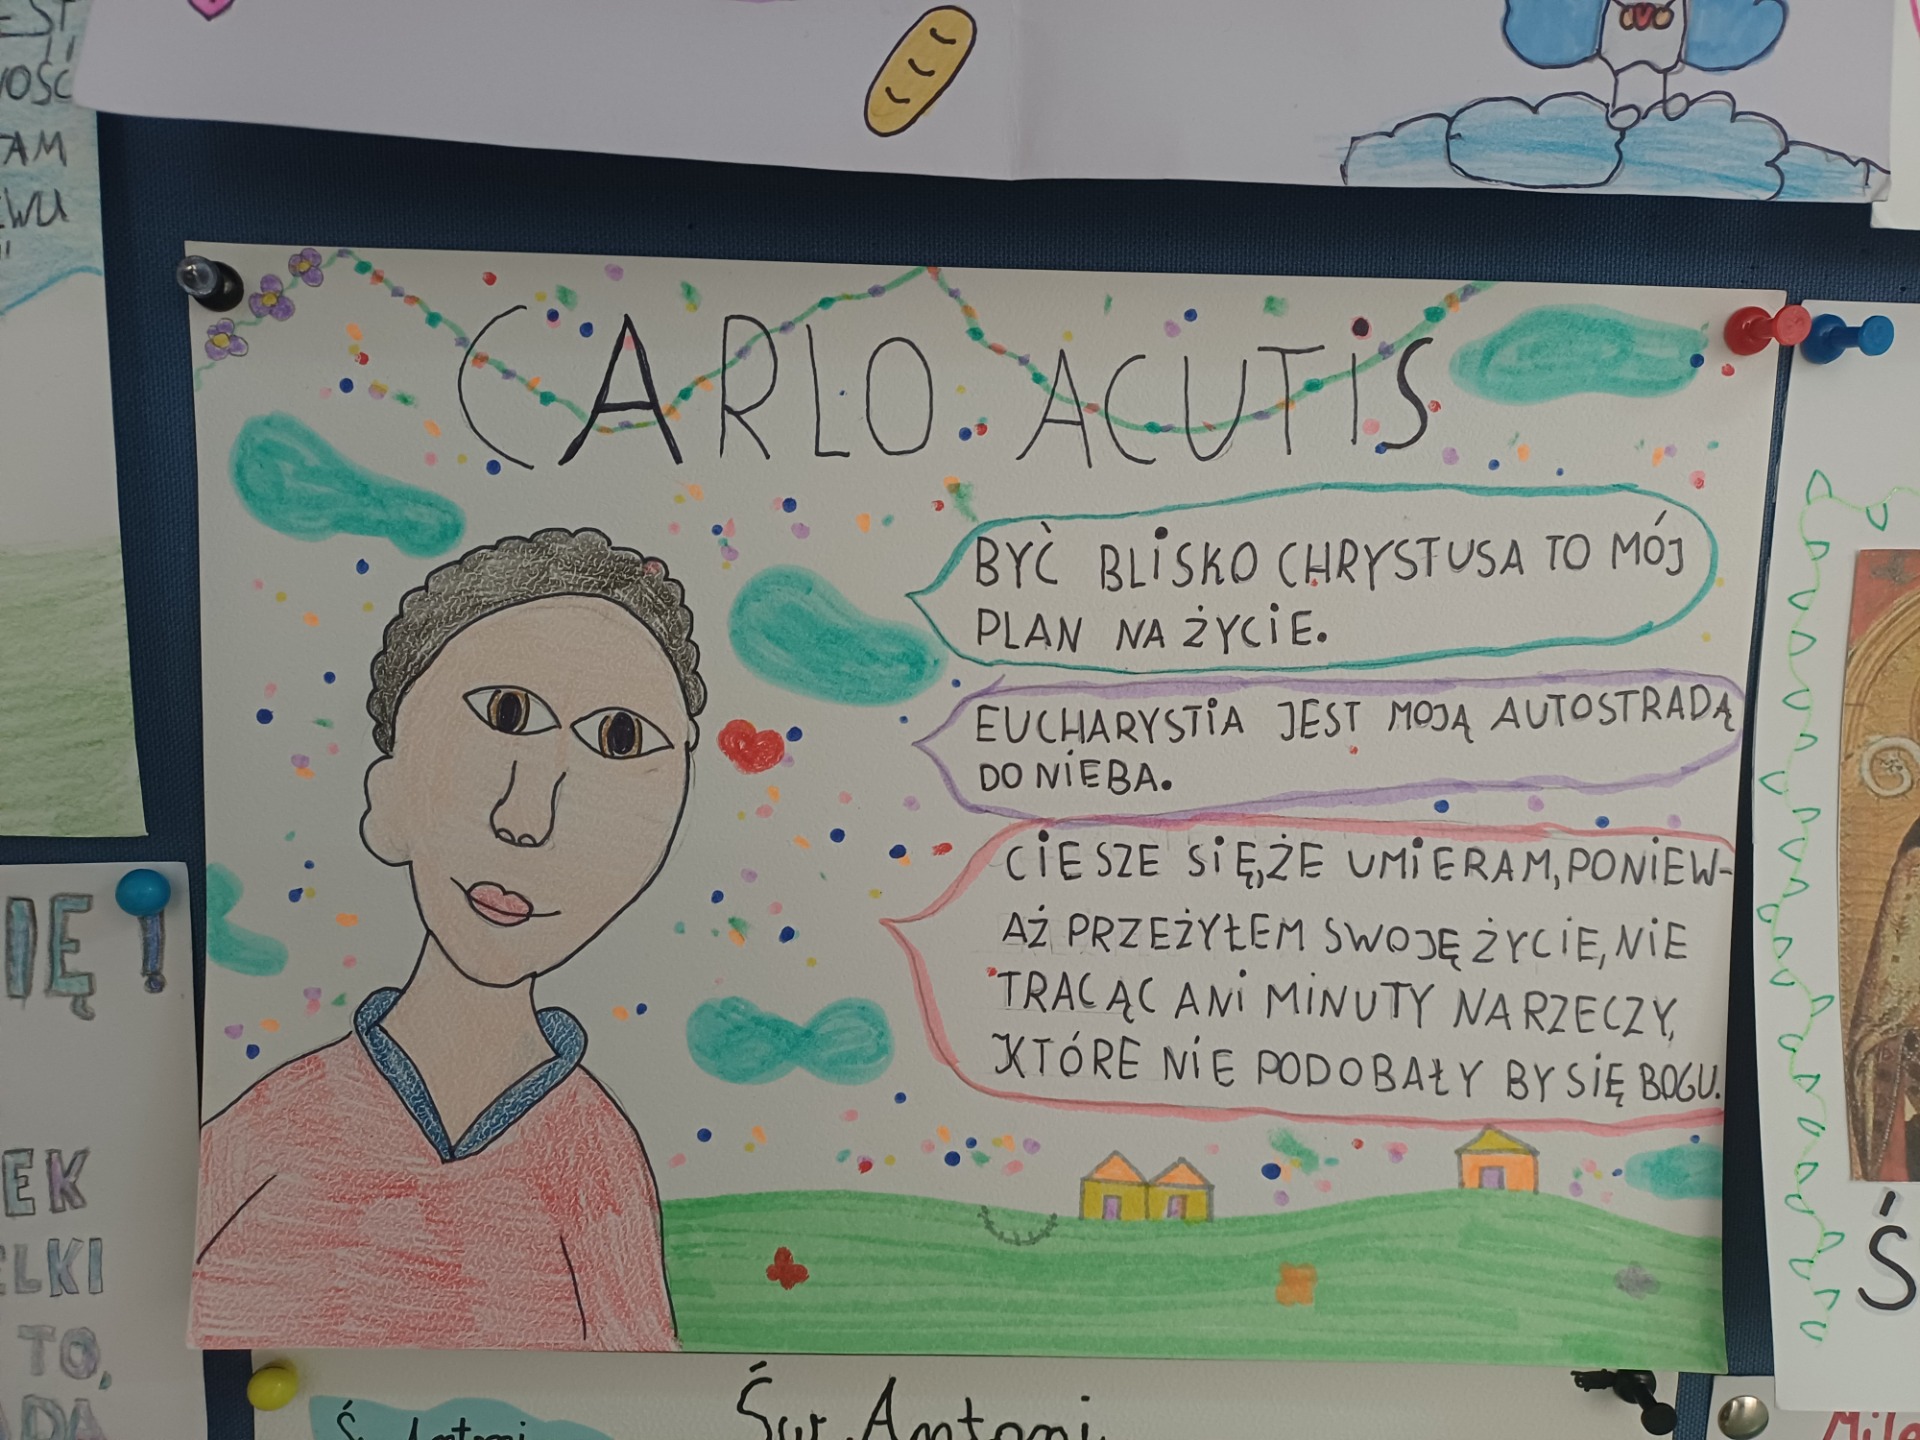 EST
TAM
CARLO ACUTIS
BYĆ BLISKO CHRYSTUSA TO MÓJ
PLAN NA ŻYCIE.
EUCHARYSTIA JEST MOJĄ AUTOSTRADĄ
DO NIEBA.
CIESZE SIĘ,ŻE UMIERAM, PONIEW-
AŻ PRZEŻYŁEM SWOJĘ ŻYCIE, NIE
TRACĄC ANI MINUTY NA RZECZY,
KTÓRE NIE PODOBAŁY BY SIĘ BOGU.
IĘ!
EK
ELKI
TO,
ADA
Ś
Ś. Antoni
Św. Antoni